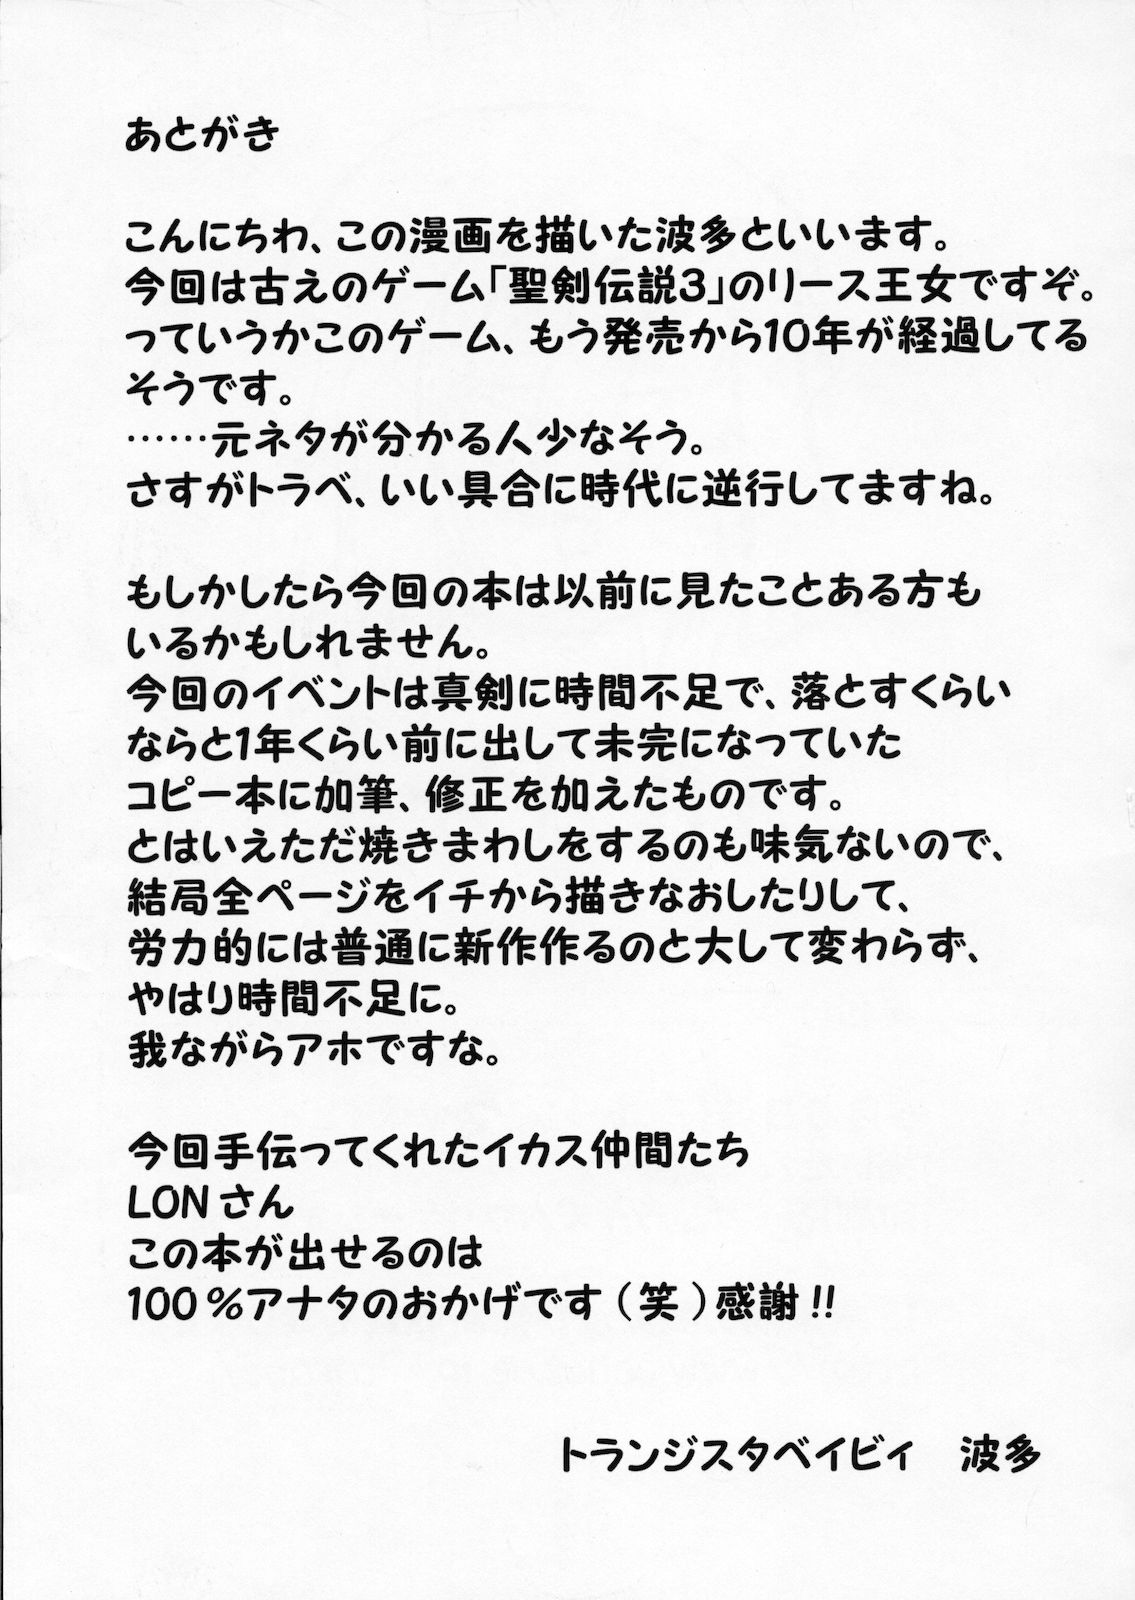 あとがき
こんにちわ、この漫画を描いた波多といいます。
今回は古えのゲーム｢聖剣伝説3｣のリース王女ですぞ。
っていうかこのゲーム、もう発売から10年が経過してる
そうです。
……元ネタが分かる人少なそう。
さすがトラベ、いい具合に時代に逆行してますね。
もしかしたら今回の本は以前に見たことある方も
いるかもしれません。
今回のイベントは真剣に時間不足で、落とすくらい
ならと1年くらい前に出して未完になっていた
コピー本に加筆、修正を加えたものです。
とはいえただ焼きまわしをするのも味気ないので、
結局全ページをイチから描きなおしたりして、
労力的には普通に新作作るのと大して変わらず、
やはり時間不足に。
我ながらアホですな。
今回手伝ってくれたイカス仲間たち
LONさん
この本が出せるのは
100％アナタのおかげです（笑）感謝!!
トランジスタベイビィ　波多